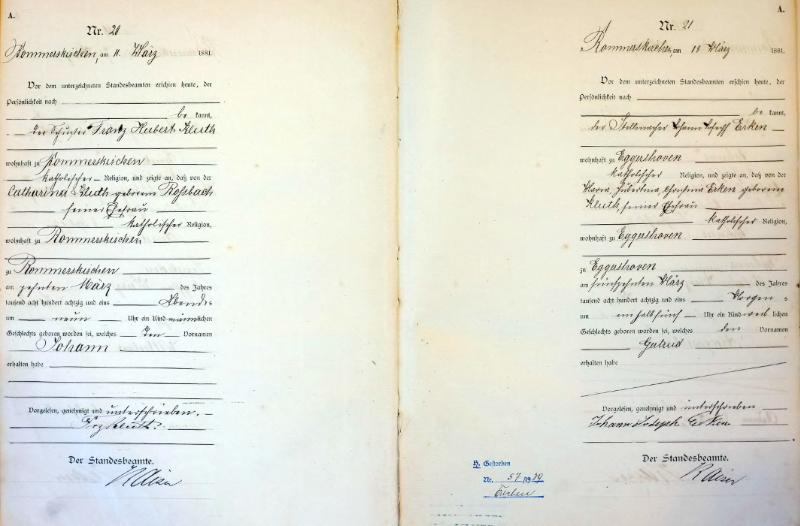 A.
Nr. 20
Rommerskirchen, am 11. März 1881.
Vor dem unterzeichneten Standesbeamten erschien heute, der
Persönlichkeit nach
be kannt,
der Franz Hubert Kluth
wohnhaft zu Rommerskirchen
katholischer Religion, und zeigte an, daß von der
Catharina Kluth geborene Roßbach
seiner Ehefrau
katholischer Religion,
wohnhaft zu Rommerskirchen
zu Rommerskirchen
am zehnten März des Jahres
tausend acht hundert achtzig und eins Abends
um neun Uhr ein Kind männlichen
Geschlechts geboren worden sei, welches den Vornamen
Johann
erhalten habe
Vorgelesen, genehmigt und unterschrieben.
Der Standesbeamte.
A.
Nr. 21
Rommerskirchen, am März 1881.
Vor dem unterzeichneten Standesbeamten erschien heute, der
Persönlichkeit nach
be kannt,
der Stellmacher Johann Joseph Erken
wohnhaft zu Eggershoven
katholischer Religion, und zeigte an, daß von der
Maria Hubertina Christina Erken geborene
Kluth, seiner Ehefrau
katholischer Religion,
wohnhaft zu Eggershoven
zu Eggershoven
am fünfzehnten März des Jahres
tausend acht hundert achtzig und eins Morgens
um Uhr ein Kind weiblichen
Geschlechts geboren worden sei, welches den Vornamen
erhalten habe
Vorgelesen, genehmigt und unterschrieben
Johann Joseph Erken
Der Standesbeamte.
Gestorben
Nr. 57/19